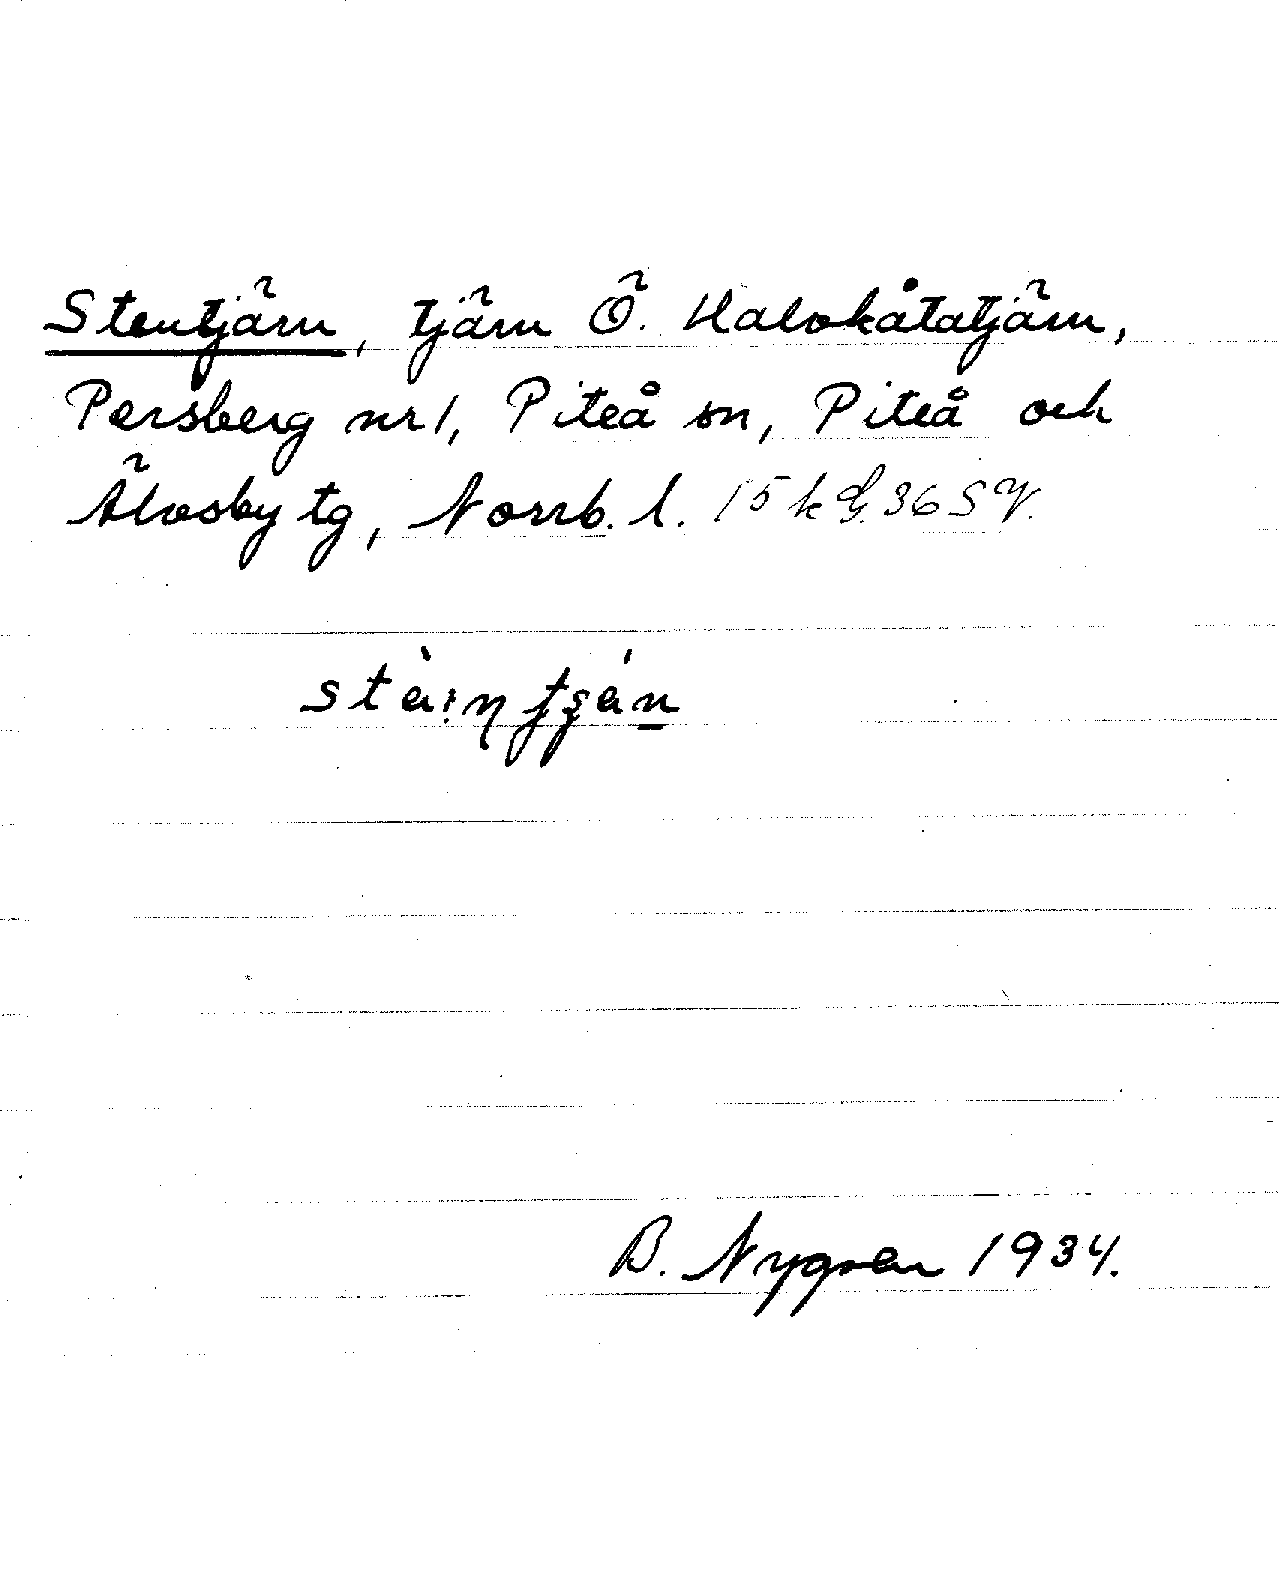 Stentjärn, tjärn Ö. Halvkåtatjärn,
Persberg nr 1, Piteå sn, Piteå och
Älvsby tg, Norrb. l. 15 k G. 36 SV.
B. Nygren 1934.